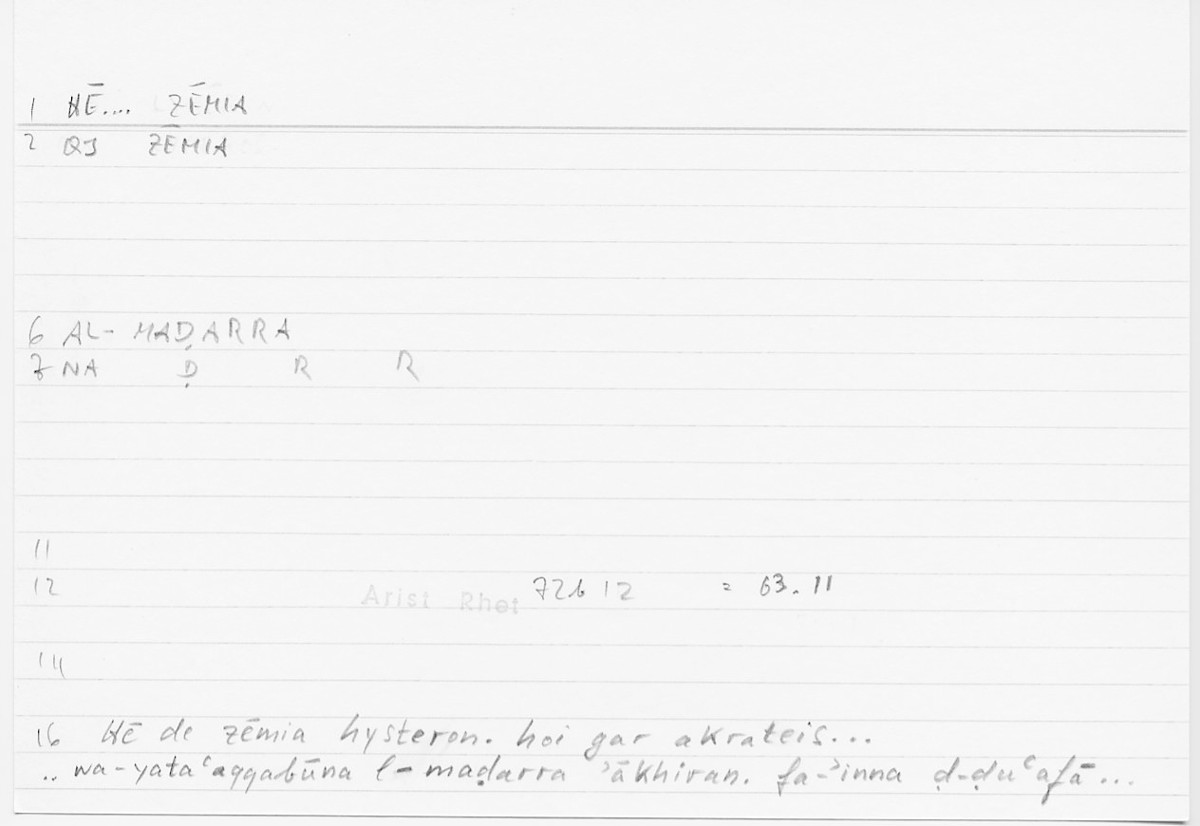 1 HĒ.... ZĒMIA
2 QJ ZĒMIA
6 AL- MAḌARRA
7 NA Ḍ R R
11
12 Arist Rhet 72b12 = 63.11
14
16 Hē de zēmia hysteron. hoi gar akrateis...
.. wa-yataʿaqqabūna l-maḍarra ʾākhiran. fa-ʾinna ḍ-ḍuʿafā...